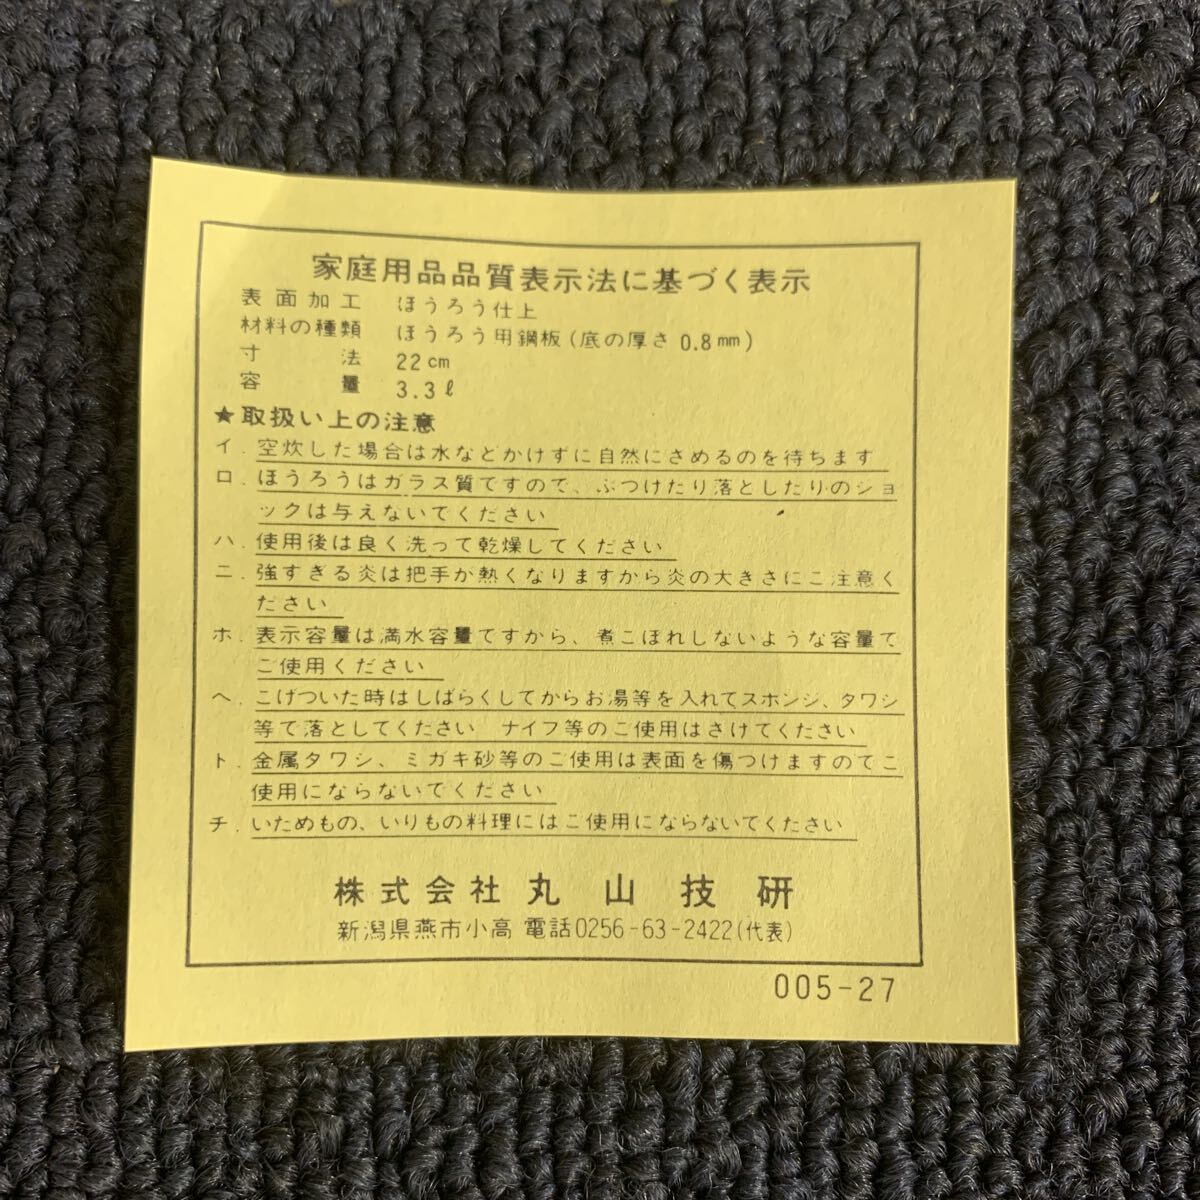 家庭用品品質表示法に基づく表示
表面加工 ほうろう仕上
材料の種類 ほうろう用鋼板(底の厚さ 0.8mm)
寸法 22cm
容量 3.3ℓ
★取扱い上の注意
イ. 空炊した場合は水などかけずに自然にさめるのを待ちます
ロ. ほうろうはガラス質ですので、ぶつけたり落としたりのショ
ックは与えないでください
ハ. 使用後は良く洗って乾燥してください
ニ. 強すぎる炎は把手が熱くなりますから炎の大きさにご注意く
ださい
ホ. 表示容量は満水容量ですから、煮こぼれしないような容量で
ご使用ください
ヘ. こげついた時はしばらくしてからお湯等を入れてスポンジ、タワシ
等で落としてください ナイフ等のご使用はさけてください
ト. 金属タワシ、ミガキ砂等のご使用は表面を傷つけますのでご
使用にならないでください
チ. いためもの、いりもの料理にはご使用にならないでください
株式会社 丸山技研
新潟県燕市小高 電話0256-63-2422(代表)
005-27